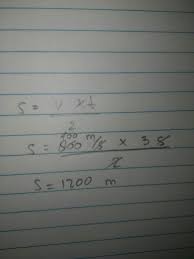 S = v x t
2
400
S = 800 m/s x 3 s
2
S = 1200 m